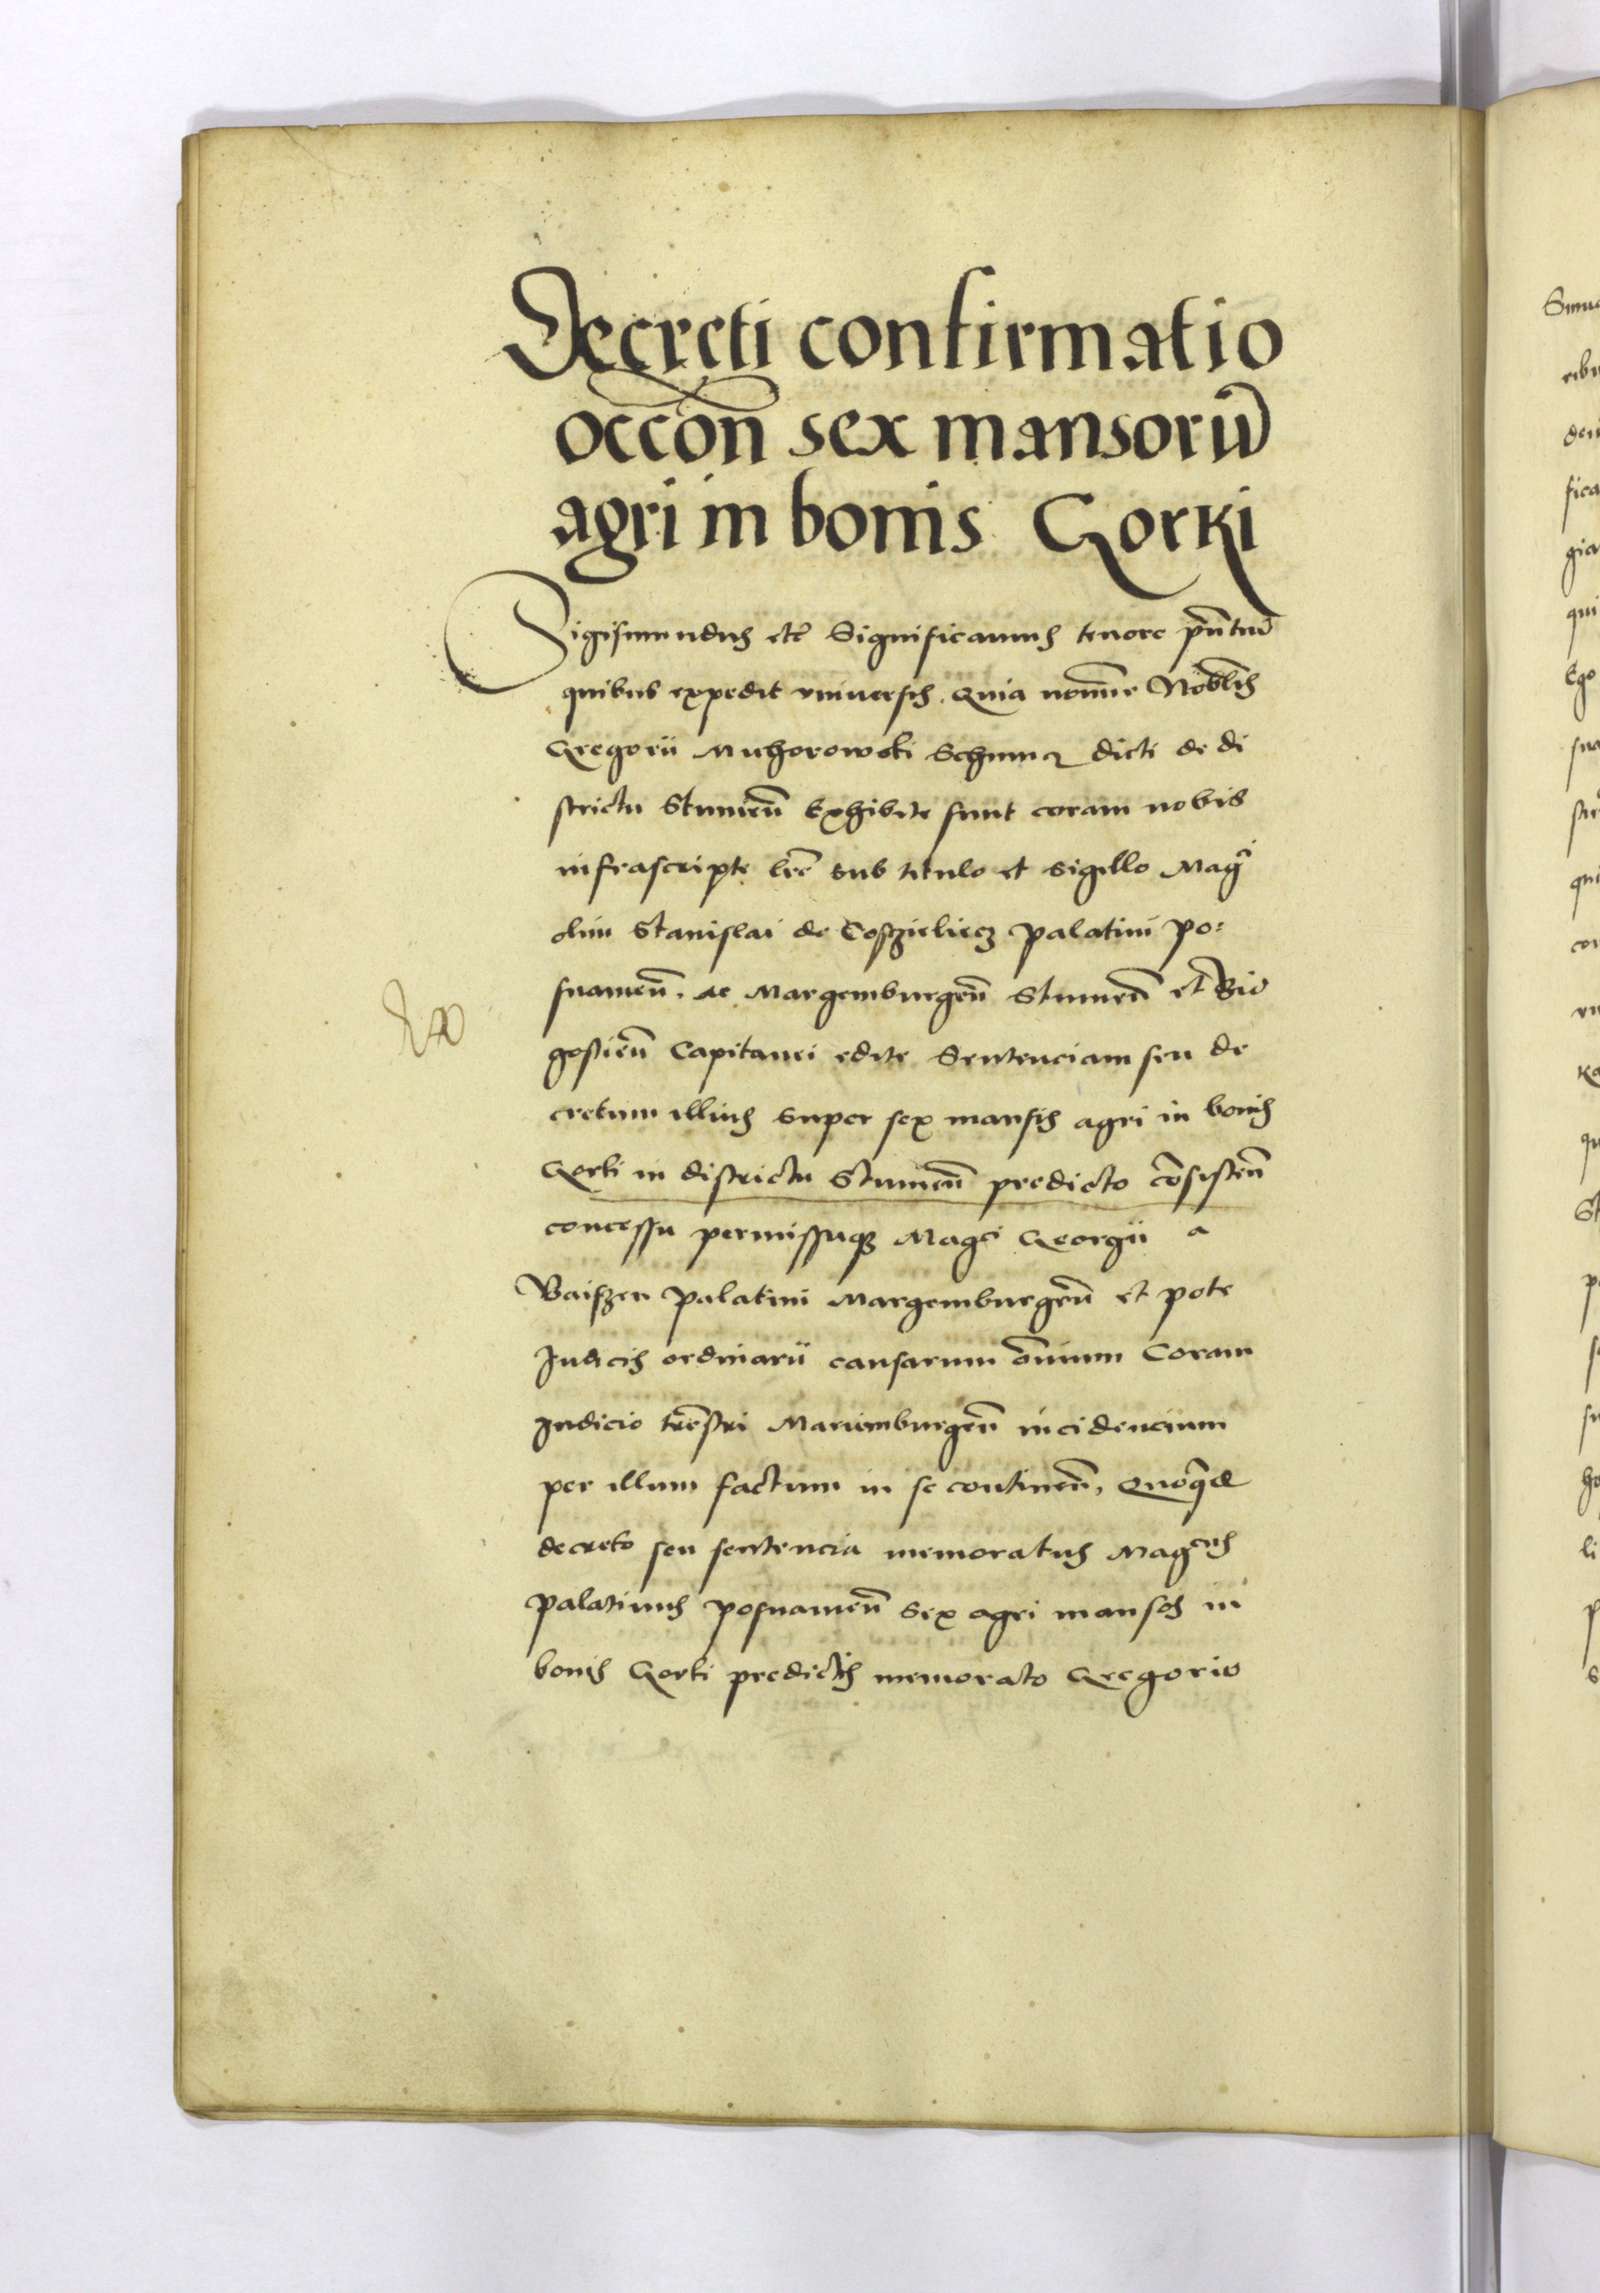 Decreti confirmatio
occōn sex mansorū
agri in bonis Gorki
Sigismundus etc̄ Significamus tenore pn̄tiū
quibus expedit vniversis. Quia nomine Nobilis
Gregorii Muchorowski dicti de di
strictu Stumeñ Exhibite sunt coram nobis
infrascripte lr̄e sub titulo et sigillo Magci
olim Stanislai de Coszieliecz palatini po:
snanieñ. ac Margemburgeñ Stumeñ et Bid
gostieñ Capitanei edite Sentenciam seu de
cretum illius super sex mansis agri in bonis
Gorki in districtu Stumeñ predicto cōsisteñ
concessu permissuque Magci Georgii a
Baiszen palatini Margemburgeñ et pote
Iudicis ordinarii causarum om̄ium Coram
Iudicio trēstri Mariemburgeñ incidencium
per illum factum in se contineñ, Quoquidē
decreto seu sentencia memoratus Magcus
palatinus posnanieñ sex agri mansos in
bonis Gorki predictis memorato Gregorio